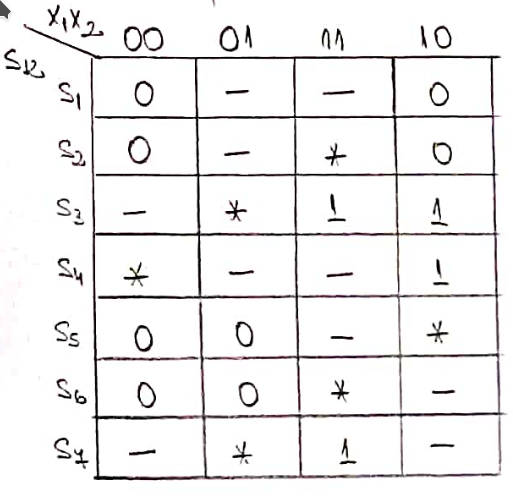 X₁X₂ 00 01 11 10
S12
S1 0 — — 0
S2 0 — * 0
S3 — * 1 1
S4 * — — 1
S5 0 0 — *
S6 0 0 * —
S7 — * 1 —